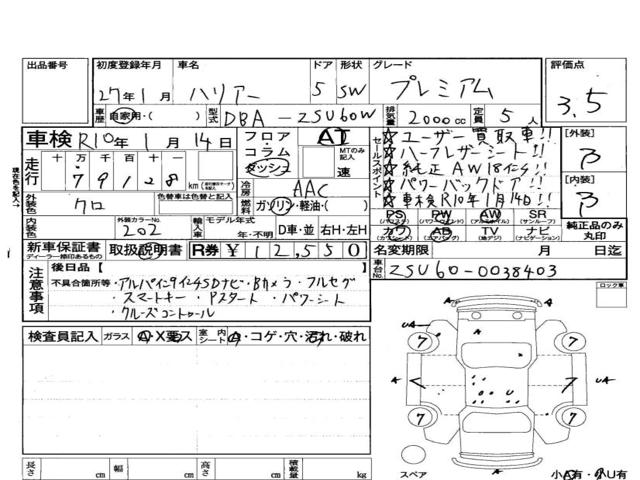 出品番号 初度登録年月 車名 ドア 形状 グレード 評価点
27年1月 ハリアー 5 SW プレミアム 3.5
車歴 自家用・( ) 型式 DBA-ZSU60W 排気量 2000cc 定員 5人
車検 R10年1月14日 フロア・コラム・ダッシュ AT MTのみ記入 速
セールスポイント
☆ユーザー買取車!!
☆ハーフレザーシート!!
☆純正AW18インチ!!
☆パワーバックドア!!
☆車検R10年1月14日!!
[外装]
[内装]
走行 十万千百十一
79128km
冷房 AAC
燃料 ガソリン・軽油・( )
外装色 クロ 色替車は色替と記入
内装色 外装カラーNo. 202 輸入車 モデル年式 年・不明 D車・並 右H・左H
PS PW AW SR
カワ AB TV ナビ
純正品のみ丸印
新車保証書 ディーラー捺印あるもの 取扱説明書 R券 ¥12,550
名変期限 月 日迄
車台No. ZSU60-0038403
ロック車
注意事項 後日品[ ]
不具合箇所等・アルパイン9インチSDナビ・Bカメラ・フルセグ
・スマートキー・Pスタート・パワーシート
・クルーズコントロール
検査員記入 ガラス A・X要ス 室内シート ・コゲ・穴・汚れ・破れ
UA A
7 7
A A UA A
7 7
スペア
小A有・小U有
長さ cm 幅 cm 高さ cm 積載量 kg
現在色を記入→